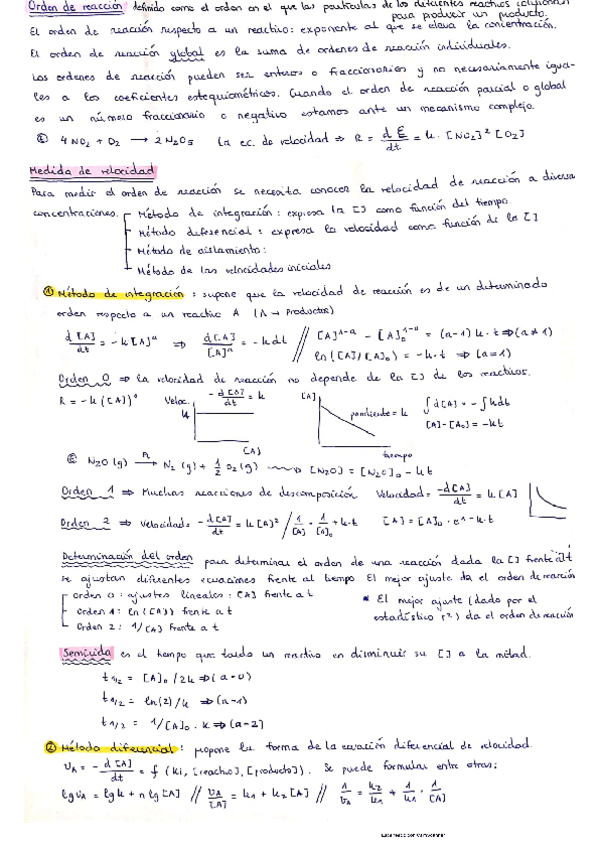 Orden de reacción definido como el orden en el que las partículas de los diferentes reactivos colisionan
para producir un producto.
El orden de reacción respecto a un reactivo: exponente al que se eleva la concentración.
El orden de reacción global es la suma de ordenes de reacción individuales.
Los ordenes de reacción pueden ser enteros o fraccionarios y no necesariamente igua-
les a los coeficientes estequiométricos. Cuando el orden de reacción parcial o global
es un número fraccionario o negativo estamos ante un mecanismo complejo.
4NO2 + O2 → 2N2O5 la ec. de velocidad ⇒ R = dE/dt = k·[NO2]² [O2]
Medida de velocidad
Para medir el orden de reacción se necesita conocer la velocidad de reacción a diversa
concentraciones. Método de integración: expresa la [] como función del tiempo.
Método diferencial: expresa la velocidad como función de la []
Método de aislamiento:
Método de las velocidades iniciales
① Método de integración: supone que la velocidad de reacción es de un determinado
orden respecto a un reactivo A (A → Productos)
d[A]/dt = -k[A]^a ⇒ d[A]/[A]^a = -kdt // [A]^1-a - [A]0^1-a = (a-1) k·t ⇒ (a≠1)
ln([A]/[A]0) = -k·t ⇒ (a=1)
Orden 0 ⇒ la velocidad de reacción no depende de la [] de los reactivos.
R = -k([A])⁰ Veloc. -d[A]/dt = k [A] pendiente = k ∫d[A] = -∫kdt
k [A]-[A0] = -kt
[A] tiempo
N2O(g) → N2(g) + 1/2 O2(g) [N2O] = [N2O]0 - kt
Orden 1 ⇒ Muchas reacciones de descomposición Velocidad = -d[A]/dt = k[A]
Orden 2 ⇒ velocidad = -d[A]/dt = k[A]² / 1/[A] = 1/[A]0 + k·t [A] = [A]0 · e^1-k·t
Determinación del orden para determinar el orden de una reacción dada la [] frente al t
se ajustan diferentes ecuaciones frente al tiempo El mejor ajuste da el orden de reacción
orden 0: ajustes lineales: [A] frente a t * El mejor ajuste (dado por el
orden 1: ln([A]) frente a t estadístico r²) da el orden de reacción
Orden 2: 1/[A] frente a t
Semivida es el tiempo que tarda un reactivo en disminuir su [] a la mitad.
t1/2 = [A]0/2k ⇒ (a=0)
t1/2 = ln(2)/k ⇒ (a=1)
t1/2 = 1/[A]0·k ⇒ (a=2)
② Método diferencial: propone la forma de la ecuación diferencial de velocidad.
VA = -d[A]/dt = f (ki, [reactivo], [producto]). Se puede formular entre otras:
lgVA = lgk + n lg[A] // VA/[A] = k1 + k2[A] // 1/VA = k2/k1 + 1/k1 · 1/[A]